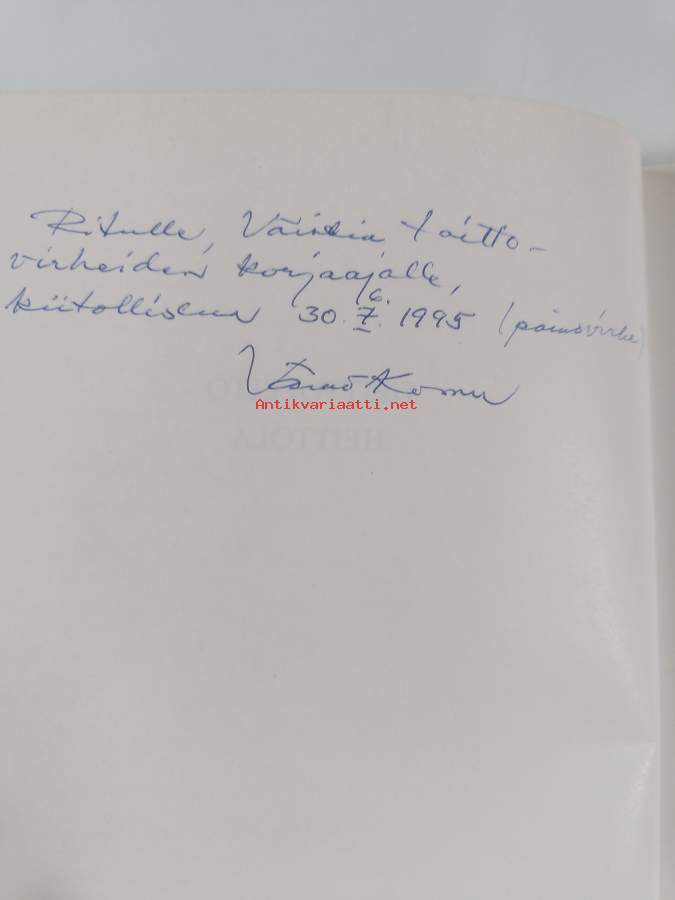 Ritulle, Väinön taitto-
virheiden korjaajalle,
kiitollisena 30.7. 1995 (painovirhe)
6.
Väinö Komu
Antikvariaatti.net
HEITTOLA